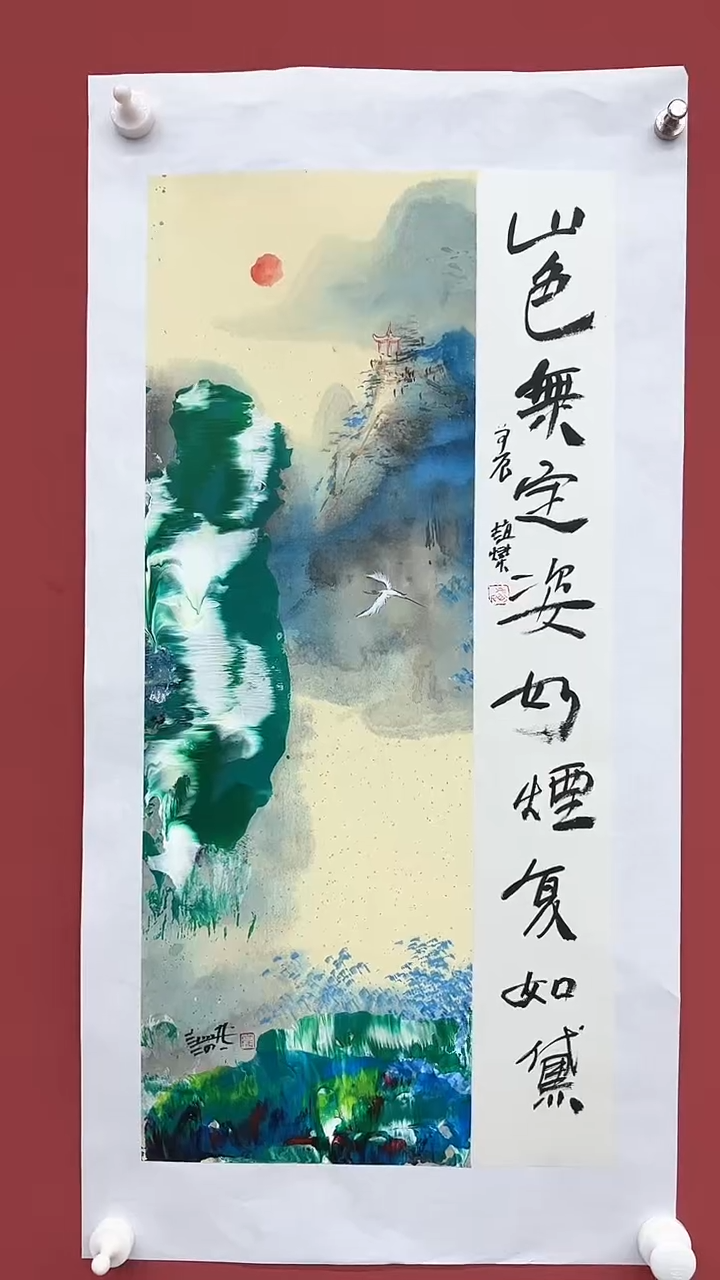 山色無定姿如煙复如黛
甲辰 趙